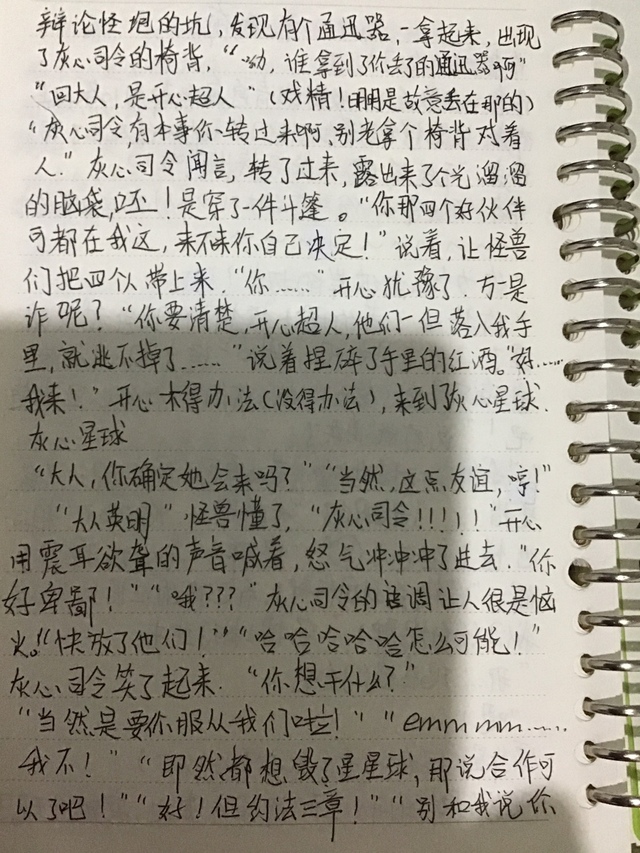 辩论怪炮的坑，发现有个通迅器，一拿起来，出现
了灰心司令的椅背，“呦，谁拿到了你丢了的通迅器啊”
“回大人，是开心超人”（戏精！明明是故意丢在那的）
“灰心司令，有本事你转过来啊，别老拿个椅背对着
人.”灰心司令闻言，转了过来，露出来了个光溜溜
的脑袋，呸！是穿了一件斗篷。“你那四个好伙伴
可都在我这，来不来你自己决定！”说着，让怪兽
们把四个人带上来.“你……”开心犹豫了.万一是
诈呢？“你要清楚，开心超人，他们一但落入我手
里，就逃不掉了……”说着捏碎了手里的红酒。“好……
我来！”开心木得办法（没得办法），来到了灰心星球.
灰心星球
“大人，你确定她会来吗？”“当然，这点友谊，哼！”
“大人英明”怪兽懂了，“灰心司令！！！！！”开心
用震耳欲聋的声音喊着，怒气冲冲冲了进去.“你
好卑鄙！”“哦？？？”灰心司令的语调让人很是恼
火。“快放了他们！”“哈哈哈哈哈怎么可能！”
灰心司令笑了起来.“你想干什么？”
“当然是要你服从我们啦！”“emm mm……
我不！”“即然都想毁了星星球，那说合作可
以了吧！”“好！但约法三章！”“别和我说你